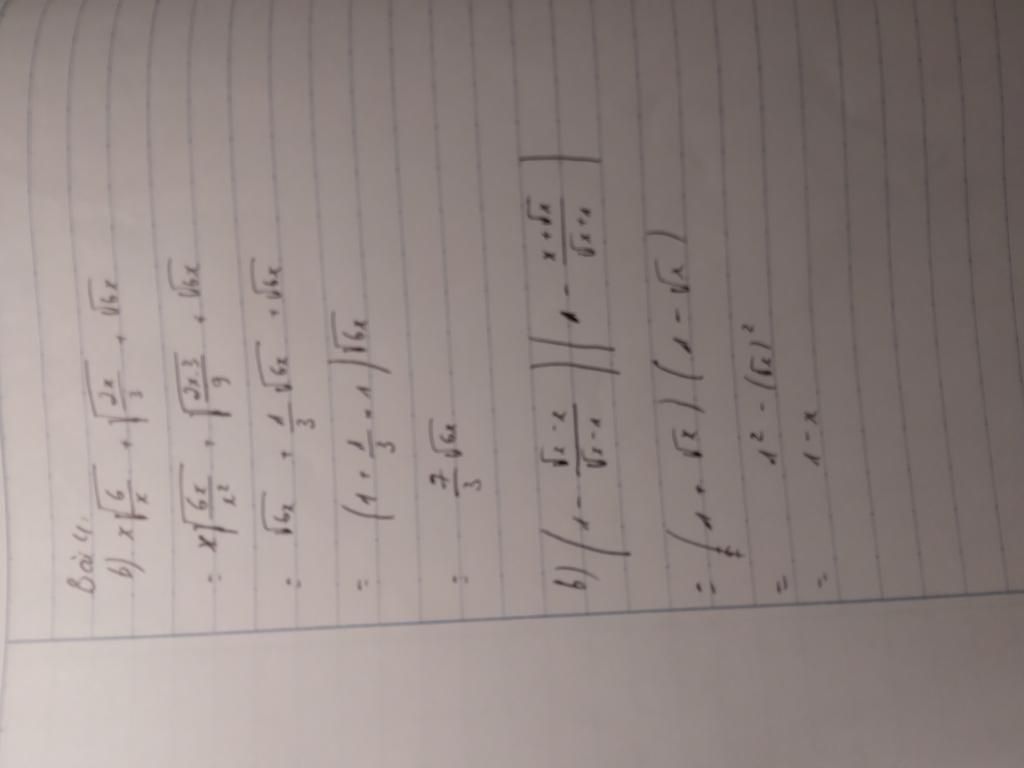 Bài 4.
b) x√(6/x) + √(2x/3) + √6x
= x√(6x/x²) + √(2x.3/9) + √6x
= √6x + 1/3 √6x + √6x
= (1 + 1/3 + 1)√6x
= 7/3 √6x
b) (1 - (√x - x)/(√x - 1))(1 - (x + √x)/(√x + 1))
= (1 + √x)(1 - √x)
= 1² - (√x)²
= 1 - x